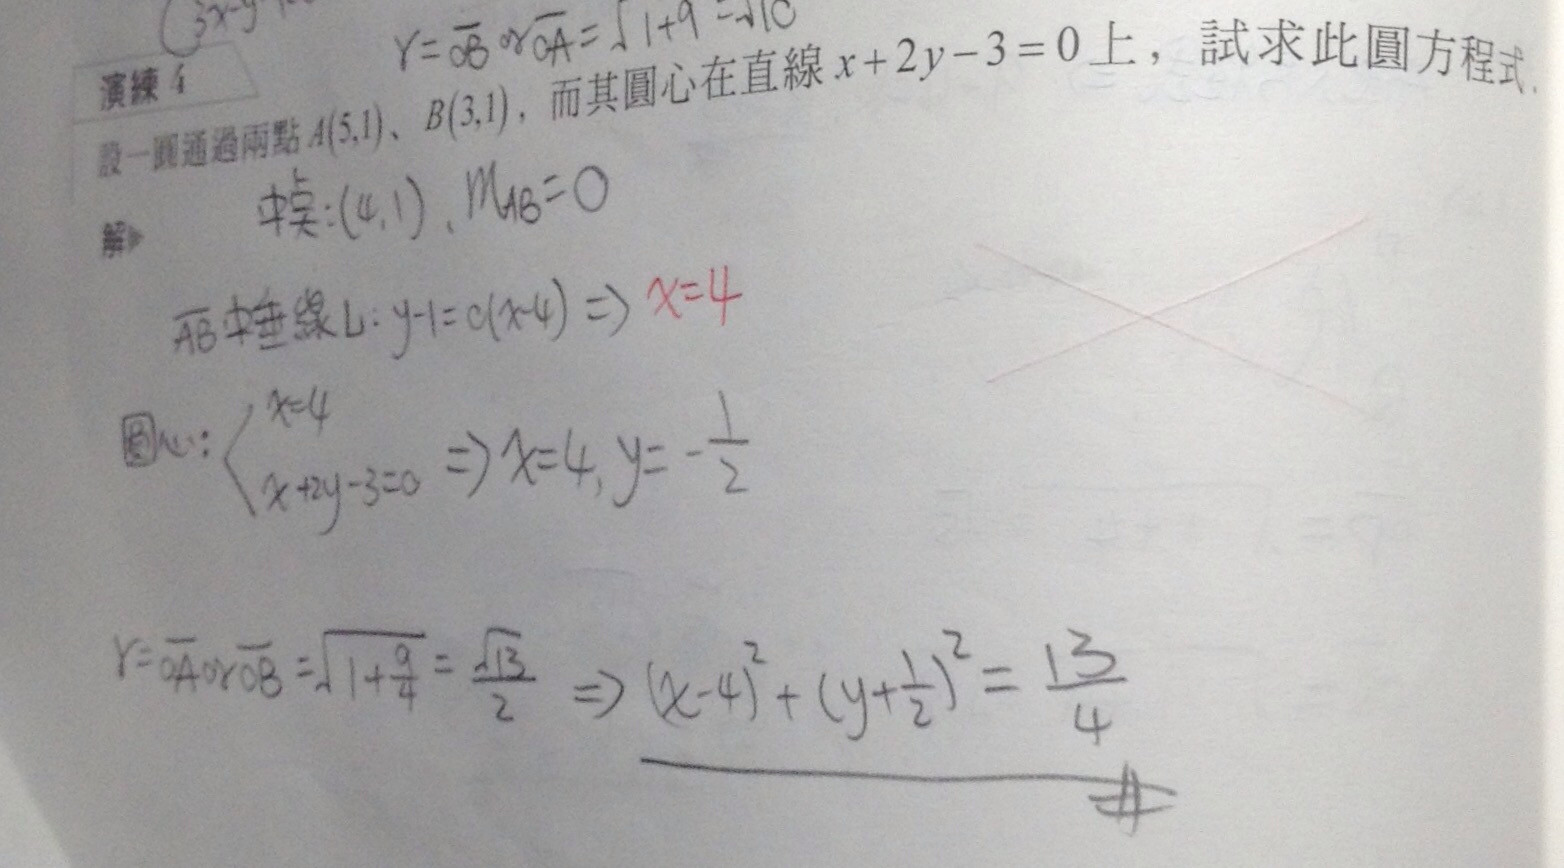 3x-y
r=OB or OA=√1+9=√10
演練 4
設一圓通過兩點A(5,1)、B(3,1)，而其圓心在直線x+2y-3=0上，試求此圓方程式.
解▶
中點:(4,1)、mAB=0
AB中垂線L:y-1=0(x-4)=>x=4
圓心:{x=4
x+2y-3=0 => x=4,y=-1/2
r=OA or OB=√1+9/4=√13/2 => (x-4)²+(y+1/2)²=13/4
#